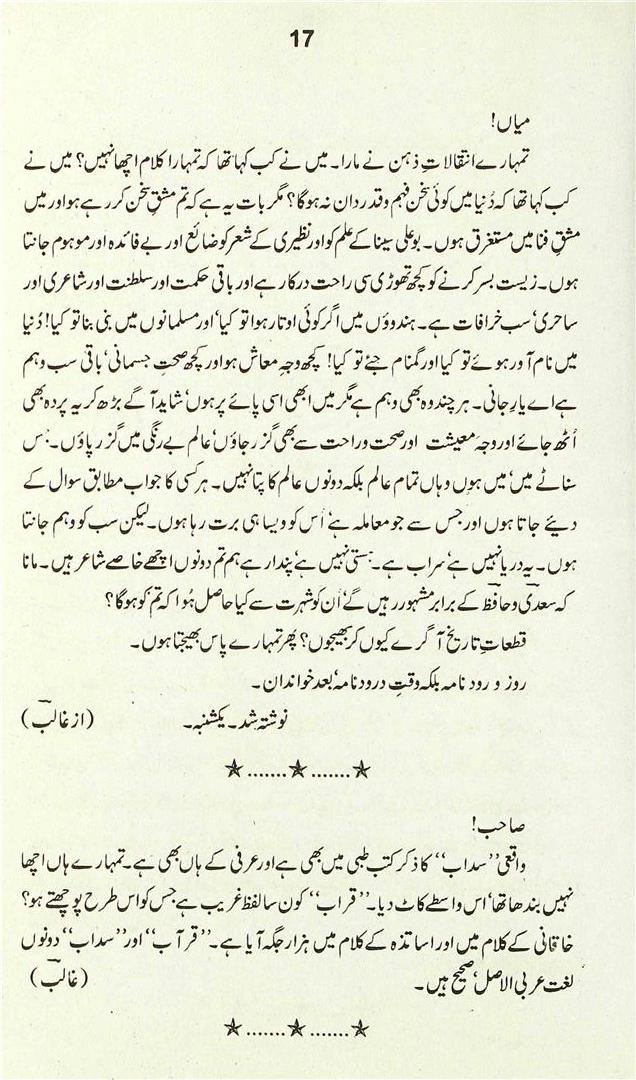 17
میاں!
تمہارے انتقالاتِ ذہن نے مارا۔ میں نے کب کہا تھا کہ تمہارا کلام اچھا نہیں؟ میں نے
کب کہا تھا کہ دُنیا میں کوئی سخن فہم و قدردان نہ ہوگا؟ مگر بات یہ ہے کہ تم مشقِ سخن کر رہے ہو اور میں
مشقِ فنا میں مستغرق ہوں۔ بوعلی سینا کے علم کو اور نظیری کے شعر کو ضائع اور بے فائدہ اور موہوم جانتا
ہوں۔ زیست بسر کرنے کو کچھ تھوڑی سی راحت درکار ہے اور باقی حکمت اور سلطنت اور شاعری اور
ساحری‘ سب خرافات ہے۔ ہندوؤں میں اگر کوئی اوتار ہوا تو کیا‘ اور مسلمانوں میں نبی بنا تو کیا! دُنیا
میں نام آور ہوئے تو کیا اور گمنام جئے تو کیا! کچھ وجہِ معاش ہو اور کچھ صحتِ جسمانی‘ باقی سب وہم
ہے اے یارِ جانی۔ ہر چند وہ بھی وہم ہے مگر میں ابھی اسی پائے پر ہوں‘ شاید آگے بڑھ کر یہ پردہ بھی
اُٹھ جائے اور وجہِ معیشت اور صحت و راحت سے بھی گزر جاؤں‘ عالم بے رنگی میں گزر پاؤں۔ جس
سناٹے میں‘ میں ہوں وہاں تمام عالم بلکہ دونوں عالم کا پتا نہیں۔ ہر کسی کا جواب مطابق سوال کے
دیئے جاتا ہوں اور جس سے جو معاملہ ہے‘ اُس کو ویسا ہی برت رہا ہوں۔ لیکن سب کو وہم جانتا
ہوں۔ یہ دریا نہیں ہے‘ سراب ہے۔ ہستی نہیں ہے‘ پندار ہے ہم تم دونوں اچھے خاصے شاعر ہیں۔ مانا
کہ سعدی و حافظ کے برابر مشہور رہیں گے‘ اُن کو شہرت سے کیا حاصل ہُوا کہ تم کو ہوگا؟
قطعاتِ تاریخ آگرے کیوں کر بھیجوں؟ پھر تمہارے پاس بھیجتا ہوں۔
روز ورود نامہ بلکہ وقتِ درود نامہ‘ بعد خواندان۔
نوشتہ شد۔ یکشنبہ۔ (از غالب)
صاحب!
واقعی ’’سداب‘‘ کا ذکر کتب طبی میں بھی ہے اور عرفی کے ہاں بھی ہے۔ تمہارے ہاں اچھا
نہیں بندھا تھا‘ اس واسطے کاٹ دیا۔ ’’قراب‘‘ کون سا لفظ غریب ہے جس کو اس طرح پوچھتے ہو؟
خاقانی کے کلام میں اور اساتذہ کے کلام میں ہزار جگہ آیا ہے۔ ’’قرآب‘‘ اور ’’سداب‘‘ دونوں
لغت عربی الاصل‘ صحیح ہیں۔ (غالب)